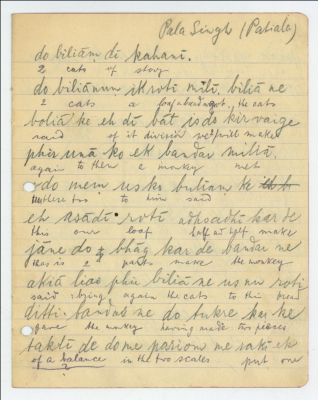 Pala Singh (Patiala)
do biliām dī kahanī.
2 cats of story
do biliānum ik rotī milī. biliā ne
2 cats a got the cats
boliā ke eh dī bāt is do kirvaige
said of it division we will make
phir unā ko ek bandar miliā
again to them a monkey met
do mem us ko buliam ke
to him said
eh asādī rotī adhoadhī kar de
this our loaf half half make
jāne do bhāg kar de bandar ne
2 parts make the monkey
akiā liao phir biliā ne us nu roti
said bring again the cats to this bread
ditti. bandar ne do tukre kar ke
gave the monkey having made two pieces
taktī de do me pariom me rakī ek
of a balance in the two scales put one